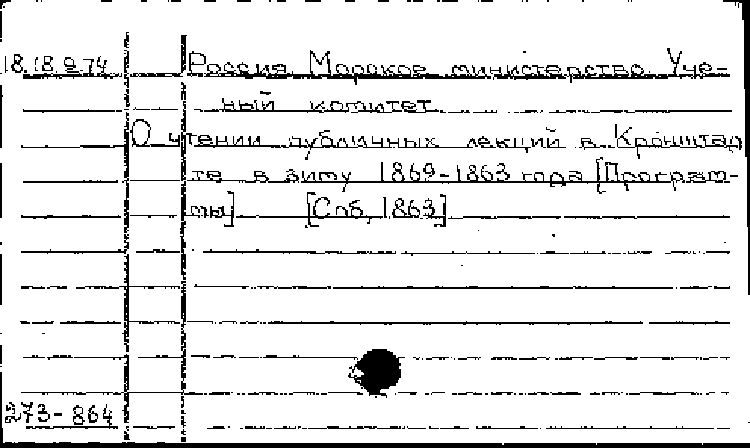 18.18.9.74 Россия. Морское министерство. Уче-
ный комитет.
О чтении публичных лекций в Кронштад
те в зиму 1869-1863 года [Програм-
мы] [Спб, 1863]
273-864